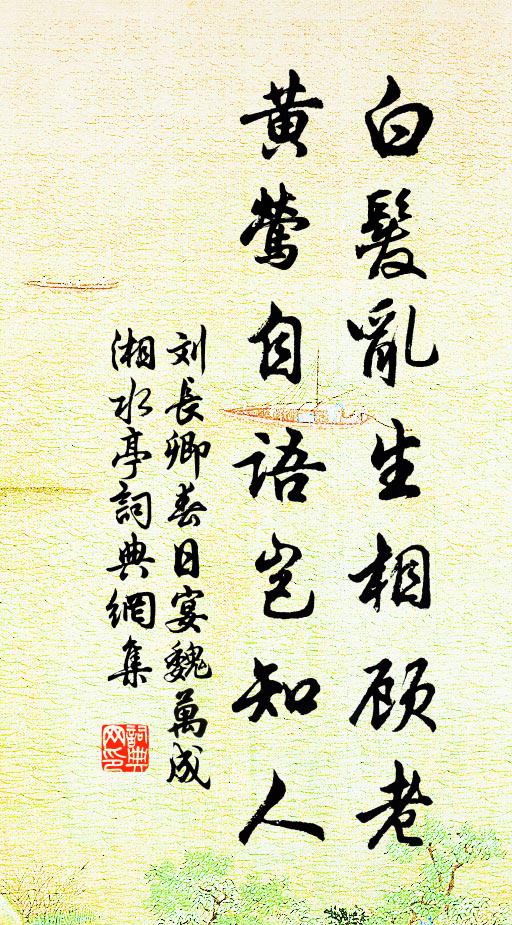 白髮亂生相顾老
黄莺自語岂知人
刘長卿春日宴魏萬成
湘水亭詞典網集
詞典
网印